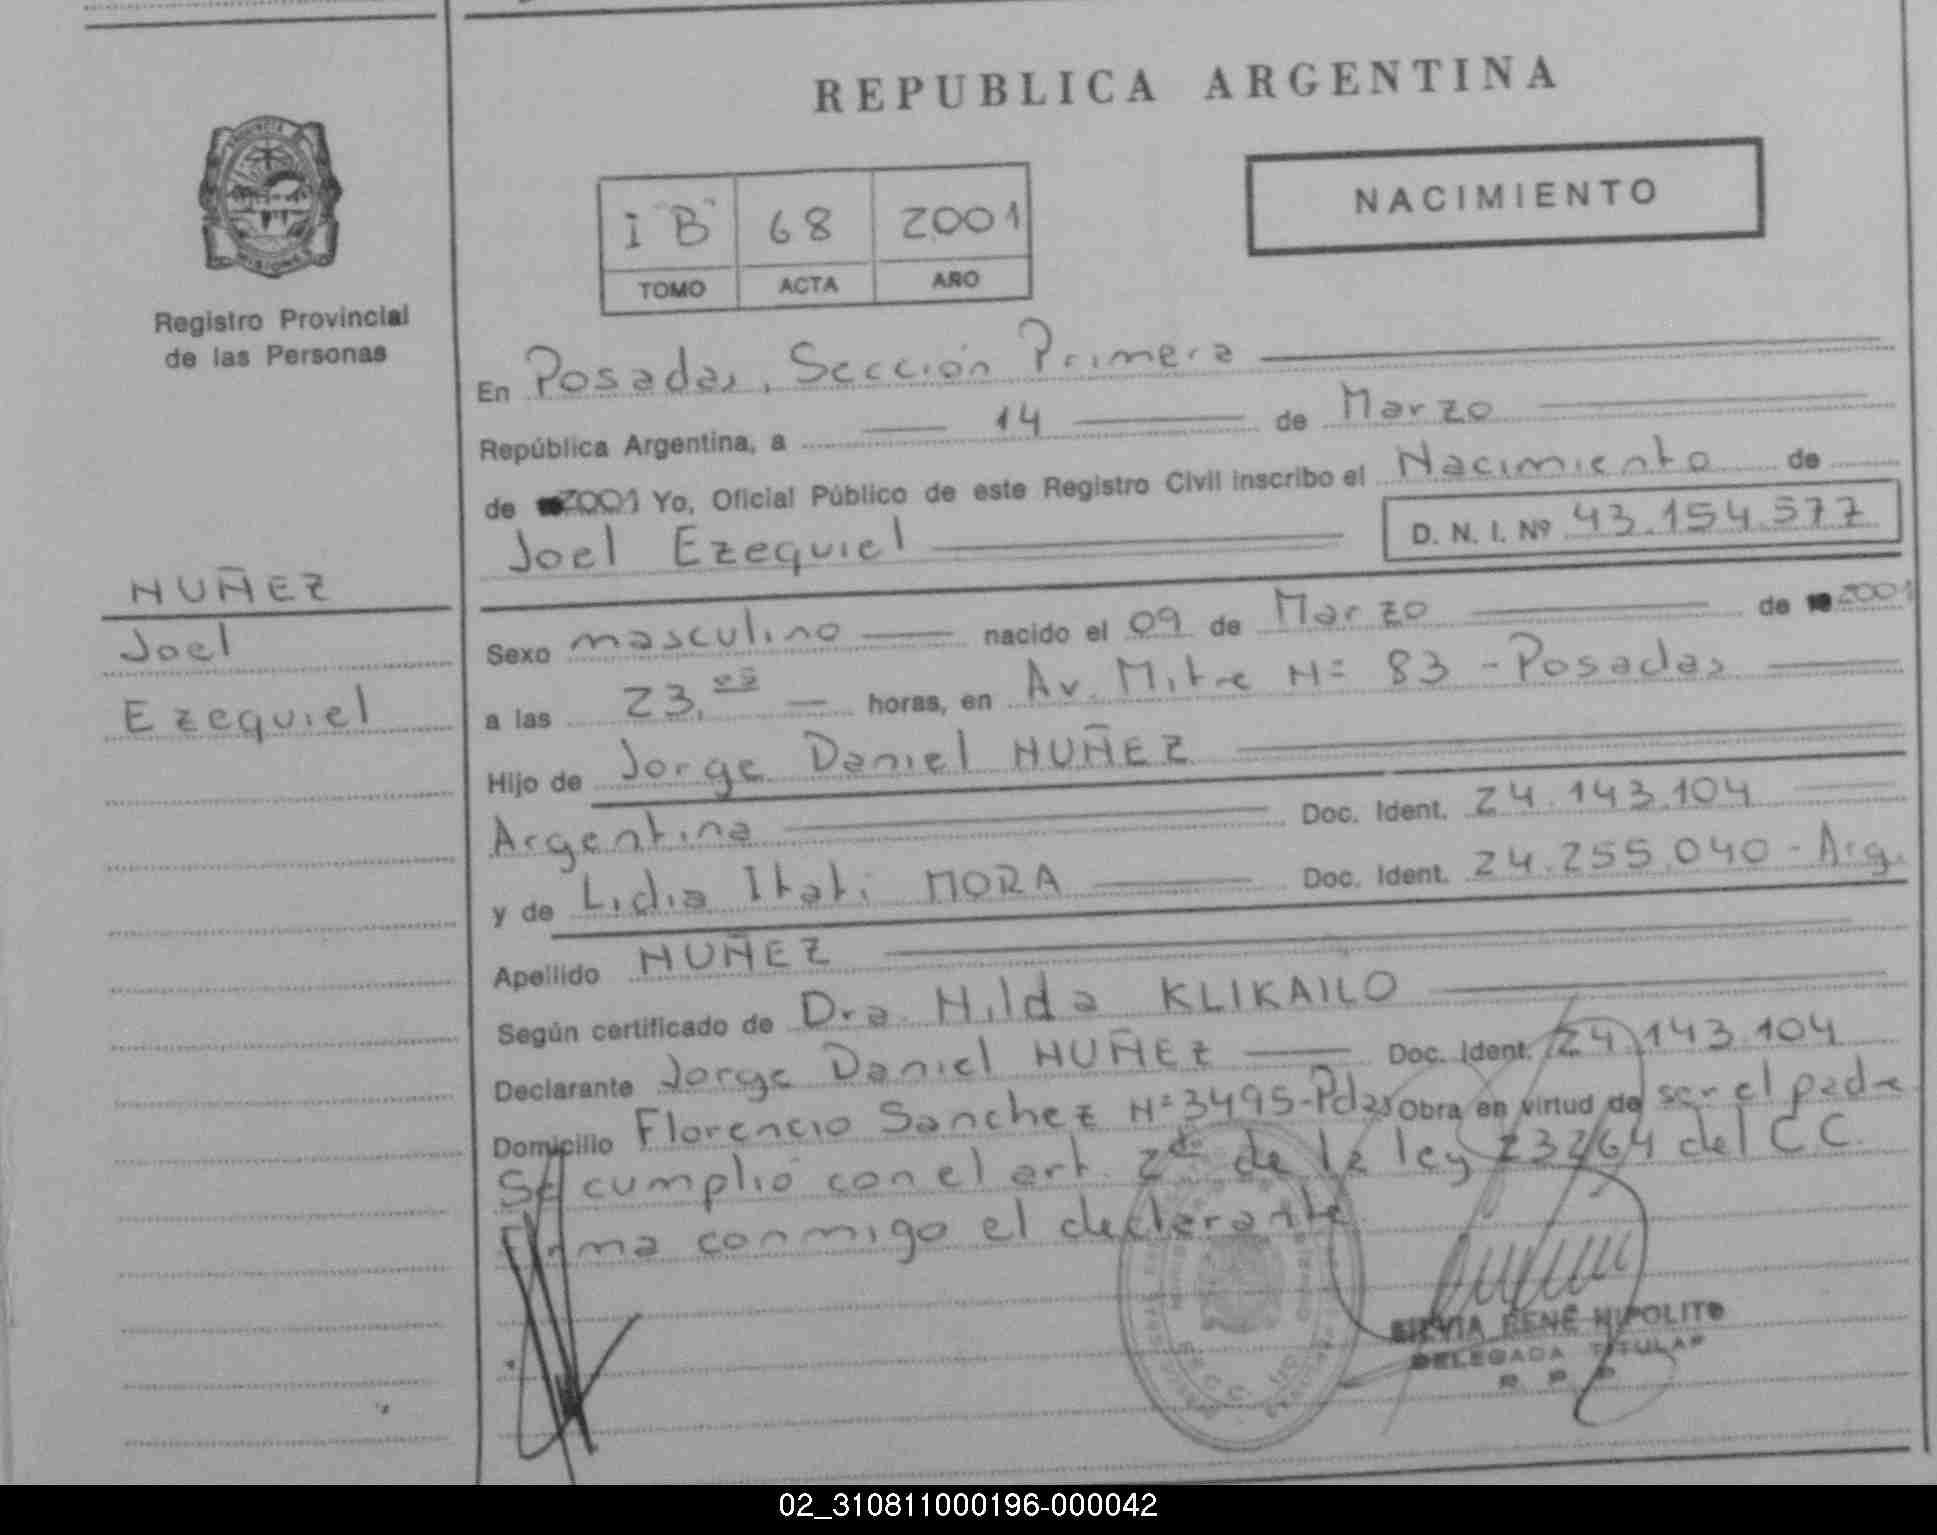 REPUBLICA ARGENTINA
NACIMIENTO
I "B" 68 2001
TOMO ACTA AÑO
PROVINCIA DE MISIONES
Registro Provincial
de las Personas
En Posadas, Sección Primera
República Argentina, a 14 de Marzo
de 2001 Yo, Oficial Público de este Registro Civil inscribo el Nacimiento de
Joel Ezequiel D. N. I. Nº 43.154.577
NUÑEZ
Joel
Ezequiel
Sexo masculino nacido el 09 de Marzo de 2001
a las 23, horas, en Av. Mitre Nº 83 - Posadas
Hijo de Jorge Daniel NUÑEZ
Argentina Doc. Ident. 24.143.104
y de Lidia Itati MORA Doc. Ident. 24.255.040 - Arg.
Apellido NUÑEZ
Según certificado de Dra. Hilda KLIKAILO
Declarante Jorge Daniel NUÑEZ Doc. Ident. 24.143.104
Domicilio Florencio Sanchez Nº 3495-Pdas Obra en virtud de ser el padre
Se cumplió con el art. 2do de la ley 23264 del C.C.
Firma conmigo el declarante
SILVIA RENÉ HIPOLITO
DELEGADA TITULAR
R P P
02_310811000196-000042